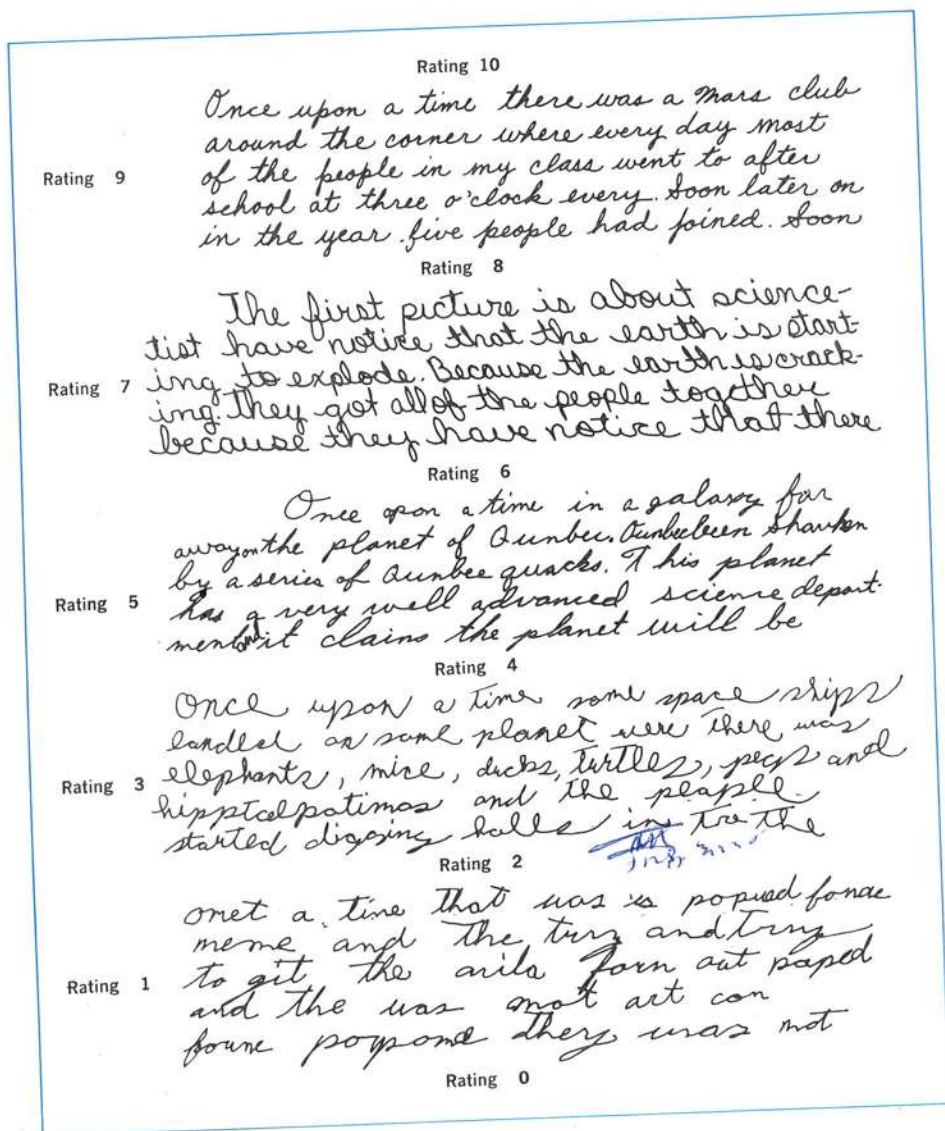 Rating 10
Once upon a time there was a Mars club
around the corner where every day most
Rating 9
of the people in my class went to after
school at three o'clock every. Soon later on
in the year five people had joined. Soon
Rating 8
The first picture is about science-
tist have notice that the earth is start-
Rating 7
ing to explode. Because the earth is crack-
ing. They got all of the people together
because they have notice that there
Rating 6
Once apon a time in a galaxy far
away on the planet of Qunbee. Qunbee been Shanken
by a series of Qunbee quacks. This planet
Rating 5
has a very well advanced science depart-
ment and it claims the planet will be
Rating 4
Once upon a time some space ships
landed on some planet were there was
Rating 3
elephants, mice, ducks, turtles, pegs and
and the people
started digging halls in the
Rating 2
onet a tine that was is
meme and the try and try
Rating 1
to git the out
and the was mot art con
they was not
Rating 0